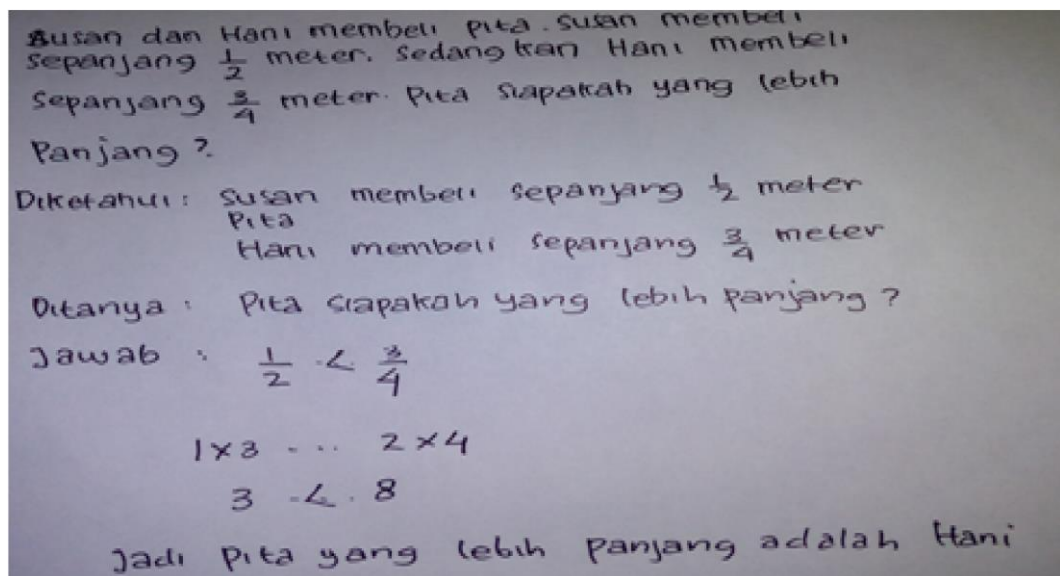 Susan dan Hani membeli pita. Susan membeli
sepanjang 1/2 meter. Sedangkan Hani membeli
sepanjang 3/4 meter. Pita siapakah yang lebih
Panjang?.
Diketahui: Susan membeli sepanjang 1/2 meter
Pita
Hani membeli sepanjang 3/4 meter
Ditanya : Pita siapakah yang lebih panjang?
Jawab : 1/2 .<. 3/4
1×3 .... 2×4
3 .<. 8
Jadi Pita yang lebih panjang adalah Hani